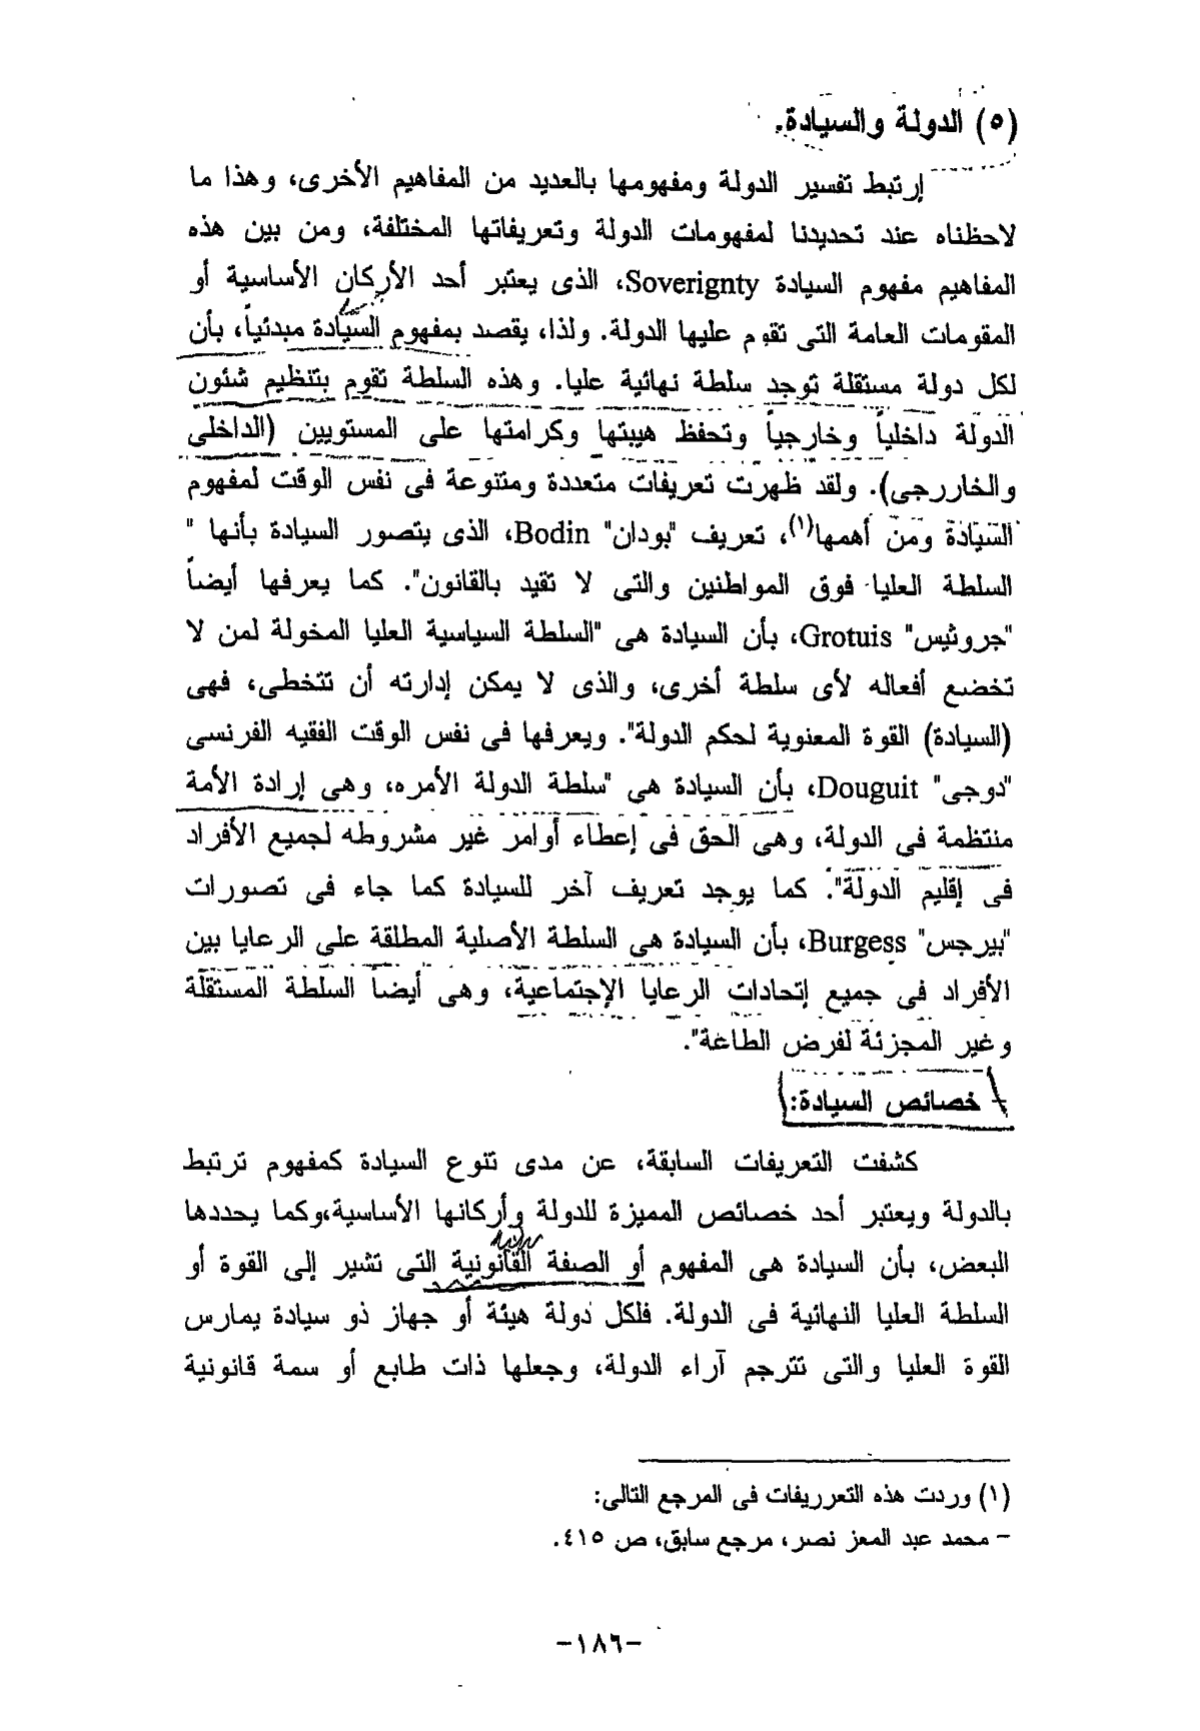 (٥) الدولة والسيادة.
إرتبط تفسير الدولة ومفهومها بالعديد من المفاهيم الأخرى، وهذا ما
لاحظناه عند تحديدنا لمفهومات الدولة وتعريفاتها المختلفة، ومن بين هذه
المفاهيم مفهوم السيادة Soverignty، الذى يعتبر أحد الأركان الأساسية أو
المقومات العامة التى تقوم عليها الدولة. ولذا، يقصد بمفهوم السيادة مبدئياً، بأن
لكل دولة مستقلة توجد سلطة نهائية عليا. وهذه السلطة تقوم بتنظيم شئون
الدولة داخلياً وخارجياً وتحفظ هيبتها وكرامتها على المستويين (الداخلى
والخاررجى). ولقد ظهرت تعريفات متعددة ومتنوعة فى نفس الوقت لمفهوم
السيادة ومن أهمها(١)، تعريف "بودان" Bodin، الذى يتصور السيادة بأنها "
السلطة العليا فوق المواطنين والتى لا تقيد بالقانون". كما يعرفها أيضاً
"جروثيس" Grotuis، بأن السيادة هى "السلطة السياسية العليا المخولة لمن لا
تخضع أفعاله لأى سلطة أخرى، والذى لا يمكن إدارته أن تتخطى، فهى
(السيادة) القوة المعنوية لحكم الدولة". ويعرفها فى نفس الوقت الفقيه الفرنسى
"دوجى" Douguit، بأن السيادة هى "سلطة الدولة الأمره، وهى إرادة الأمة
منتظمة فى الدولة، وهى الحق فى إعطاء أوامر غير مشروطه لجميع الأفراد
فى إقليم الدولة". كما يوجد تعريف آخر للسيادة كما جاء فى تصورات
"بيرجس" Burgess، بأن السيادة هى السلطة الأصلية المطلقة على الرعايا بين
الأفراد فى جميع إتحادات الرعايا الإجتماعية، وهى أيضاً السلطة المستقلة
وغير المجزئة لفرض الطاعة".
- خصائص السيادة:
كشفت التعريفات السابقة، عن مدى تنوع السيادة كمفهوم ترتبط
بالدولة ويعتبر أحد خصائص المميزة للدولة وأركانها الأساسية،وكما يحددها
البعض، بأن السيادة هى المفهوم أو الصفة القانونية التى تشير إلى القوة أو
السلطة العليا النهائية فى الدولة. فلكل دولة هيئة أو جهاز ذو سيادة يمارس
القوة العليا والتى تترجم آراء الدولة، وجعلها ذات طابع أو سمة قانونية
(١) وردت هذه التعرريفات فى المرجع التالى:
- محمد عبد المعز نصر، مرجع سابق، ص ٤١٥.
-١٨٦-